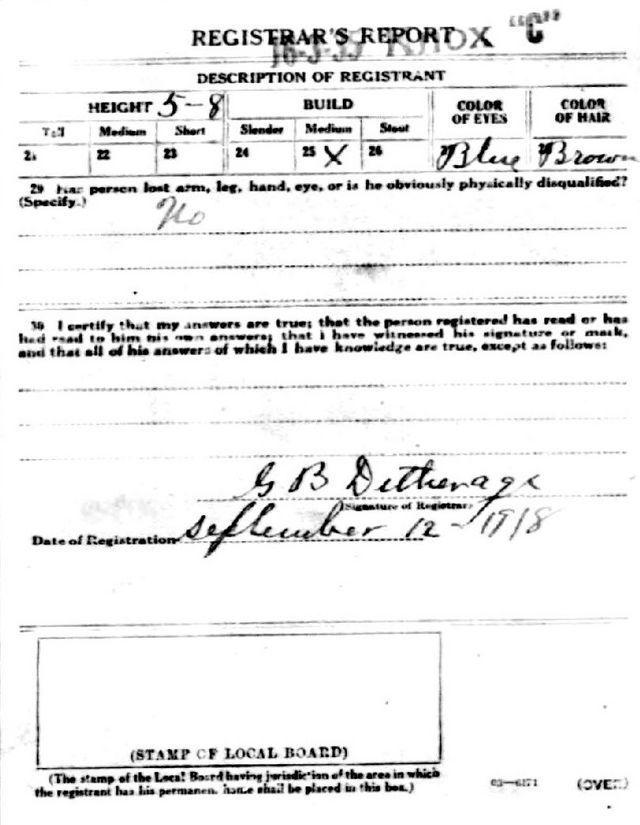 REGISTRAR'S REPORT "C"
16-3-35 KNOX
DESCRIPTION OF REGISTRANT
HEIGHT 5-8 BUILD COLOR OF EYES COLOR OF HAIR
Tall Medium Short Slender Medium Stout
21 22 23 24 25 X 26 27 Blue 28 Brown
29 Has person lost arm, leg, hand, eye, or is he obviously physically disqualified?
(Specify.)
No
30 I certify that my answers are true; that the person registered has read or has
had read to him his own answers; that I have witnessed his signature or mark,
and that all of his answers of which I have knowledge are true, except as follows:
G B Ditherage
(Signature of Registrar)
Date of Registration September 12-1918
(STAMP OF LOCAL BOARD)
(The stamp of the Local Board having jurisdiction of the area in which
the registrant has his permanent home shall be placed in this box.)
03-6171 (OVER)